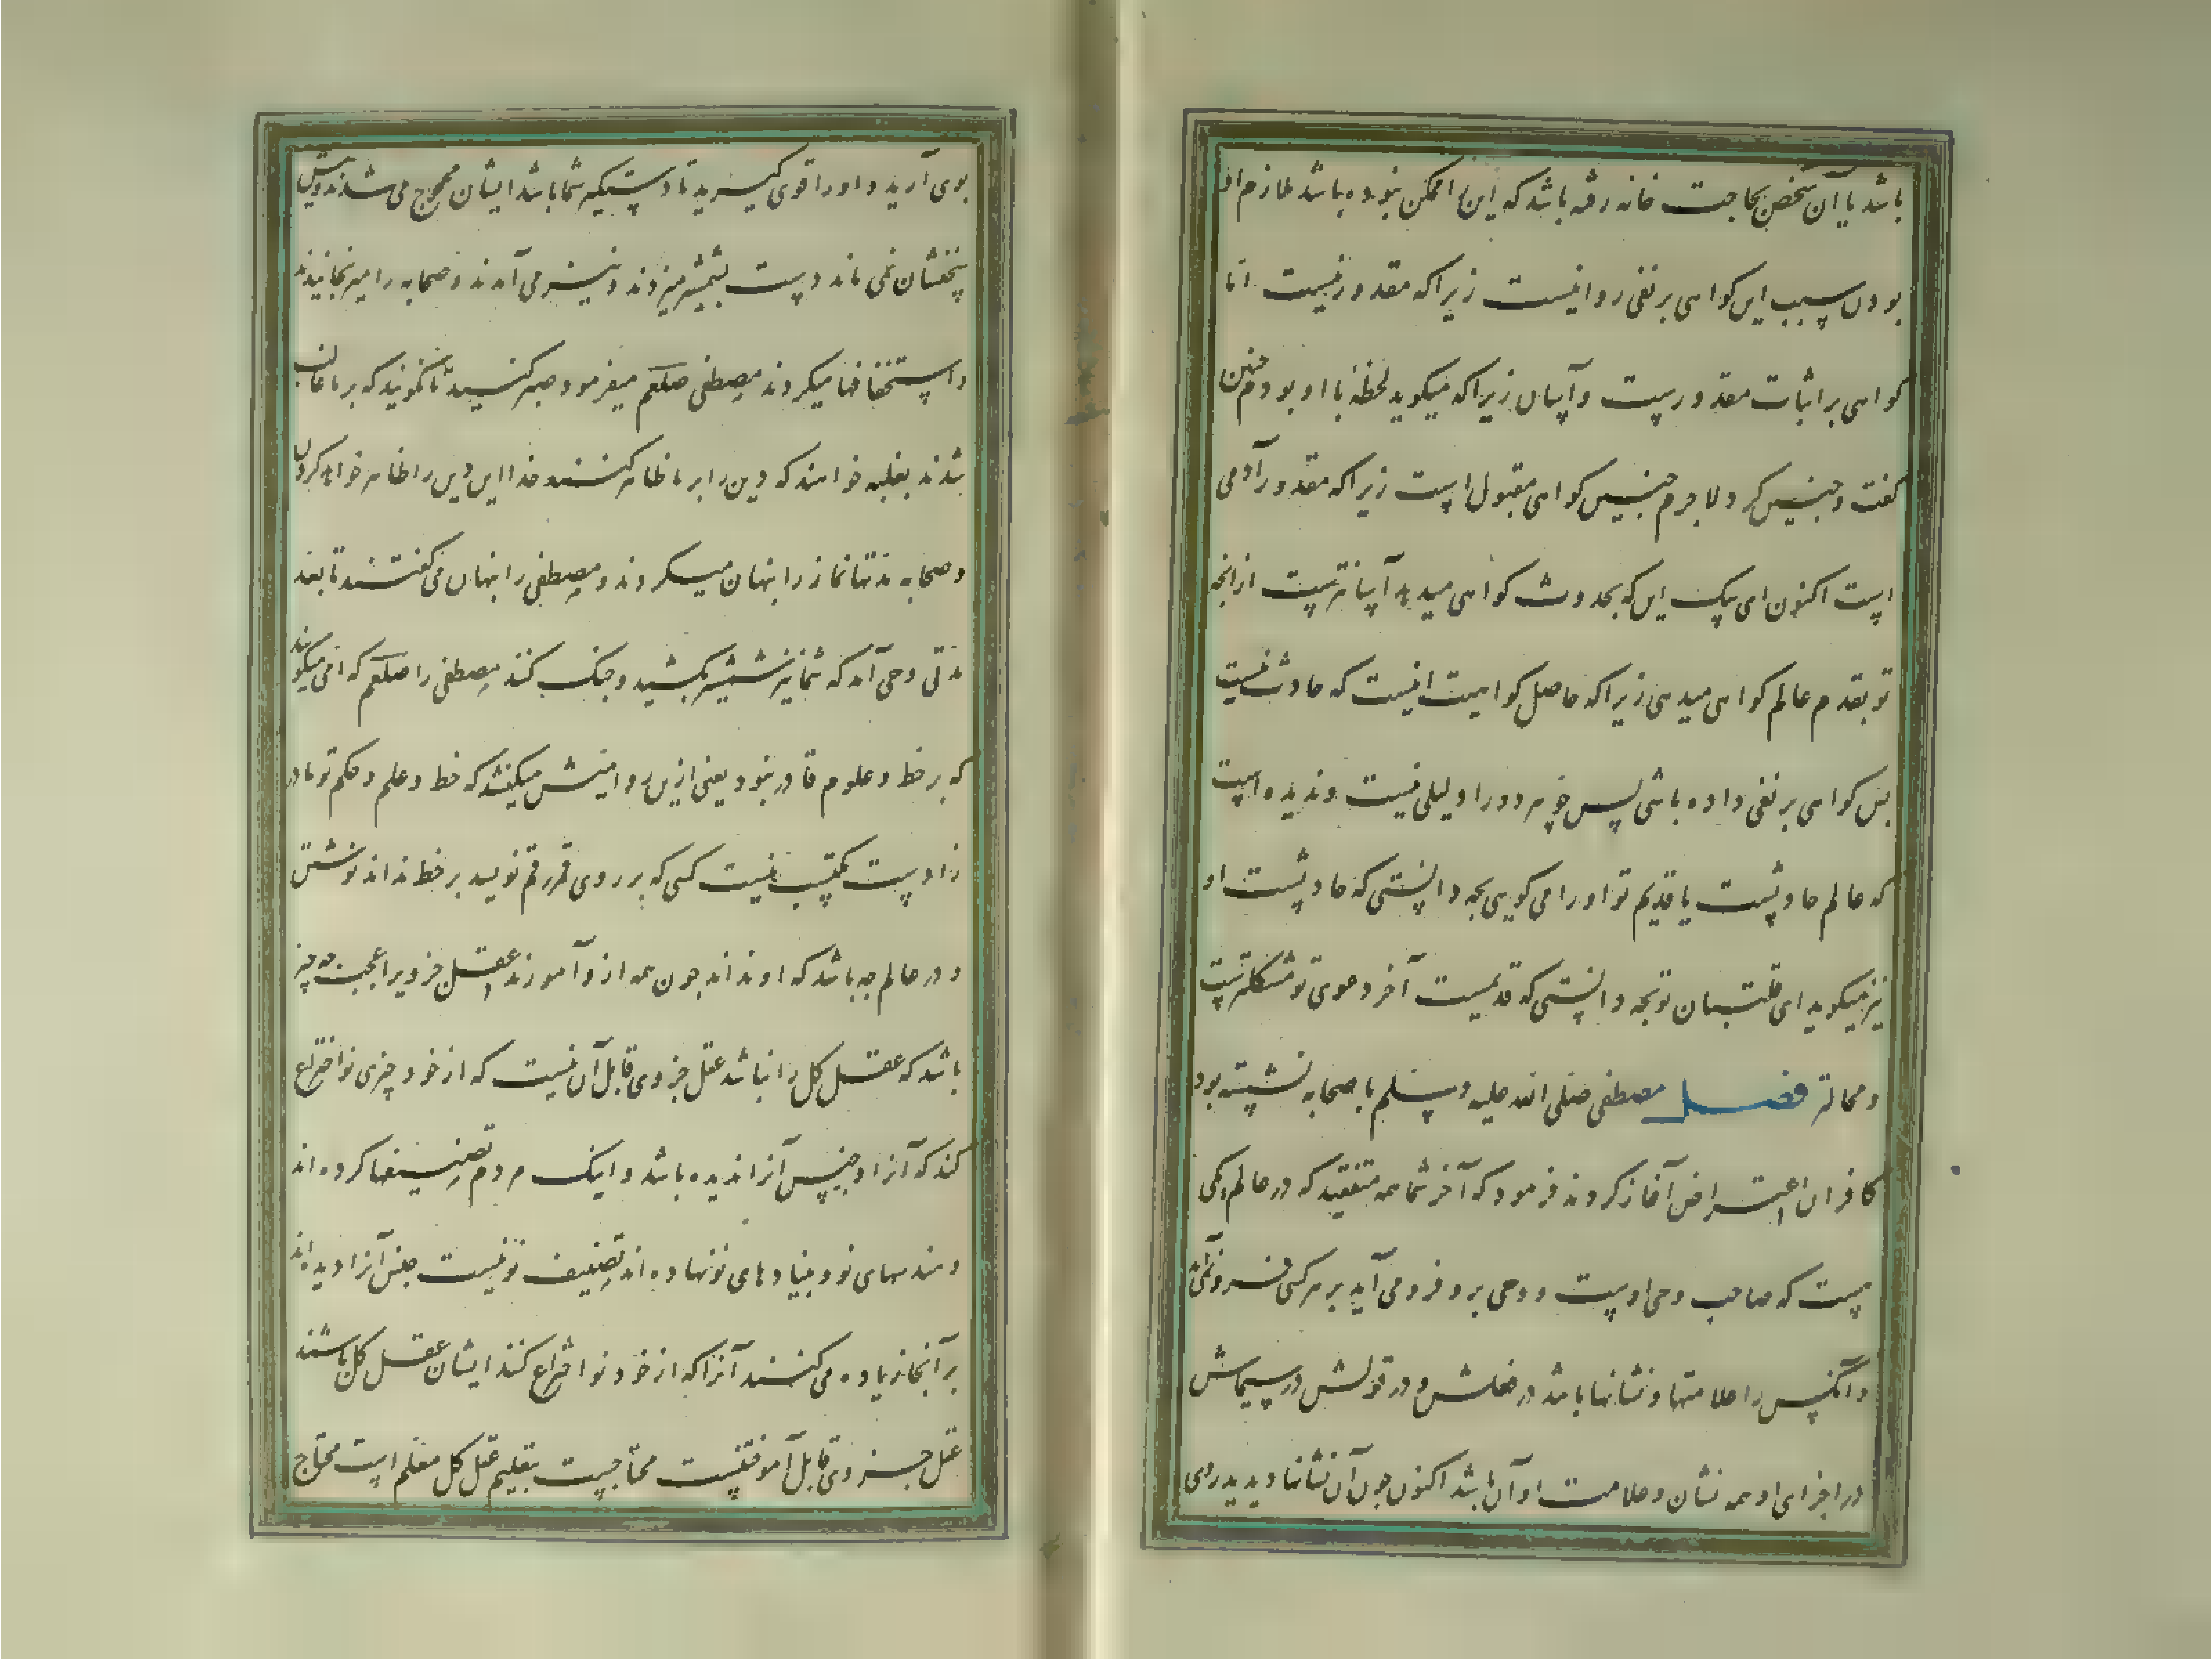 باشد یا آن شخص بحاجت خانه رفته باشد که این را ممکن نبوده باشد ملازم او
بودن سبب این کواهی بر نفی روا نیست زیرا که مقدور نیست اما
کواهی بر اثبات مقدورست و آسان زیرا که میکوید لحظهٔ با او بودم چنین
کفت و چنین کرد لاجرم چنین کواهی مقبول است زیرا که مقدور آدمی
است اکنون ای سک این که بحدوث کواهی میدهد آسانترست ازانچه
تو بقدم عالم کواهی میدهی زیرا که حاصل کواهیت اینست که حادث نیست
بس کواهی بر نفی داده باشی پس چو هر دو را دلیلی نیست و ندیده است
که عالم حادثست یا قدیم تو او را می کویی بچه دانستی که حادثست او
نیز میکوید ای قلتبان تو بچه دانستی که قدیمست آخر دعوی تو مشکلترست
و محالتر فصل مصطفی صلی الله علیه وسلم با صحابه نشسته بود
کافران اعتراض آغاز کردند فرمود که آخر شما همه متفقید که در عالم یکی
هست که صاحب وحی اوست و وحی برو فرو می آید بر هر کسی فرو نمی‌آید
و آنکس را علامتها و نشانها باشد در فعلش و در قولش در سیماش
در اجزای او همه نشان و علامت او آن باشد اکنون جون آن نشانها دیدید روی
بوی آرید و او را قوی کیرید تا دستکیر شما باشد ایشان محجوج می شدند و بیش
سخنشان نمی ماند دست بشمشیر میزدند و نیز می آمدند و صحابه را میرنجانیدند
و استخفافها میکردند مصطفی صلعم میفرمود صبر کنید تا نکویند که بر ما غالب
شدند بغلبه خواهند که دین را بر ما ظاهر کنند خدا این دین را ظاهر خواهد کردن
و صحابه مدتها نماز را بنهان میکردند و مصطفی را بنهان می کفتند تا بعد
مدتی وحی آمد که شما نیز شمشیر بکشید و جنک کنید مصطفی را صلعم که امی میکویند
که بر خط و علوم قادر نبود یعنی ازین رو امیش میکفتند که خط و علم و حکم تو مادر
زادست مکتسب نیست کسی که بر روی قمر رقم نویسد بر خط نداند نوشتن
و در عالم جه باشد که او نداند جون همه ازو آموزند عقل جزویرا عجب چه چیز
باشد که عقل کل را نباشد عقل جزوی قابل آن نیست که از خود چیزی نو اختراع
کند که آنرا و جنس آنرا ندیده باشد و اینک مردم تصنیفها کرده اند
و هندسهای نو و بنیادهای نو نهاده اند تصنیف نو نیست جنس آنرا دیده‌اند
بر آنجا زیاده می کنند آنرا که از خود نو اختراع کنند ایشان عقل کل باشند
عقل جزوی قابل آموختنست محتاجست بتعلیم عقل کل معلم است محتاج